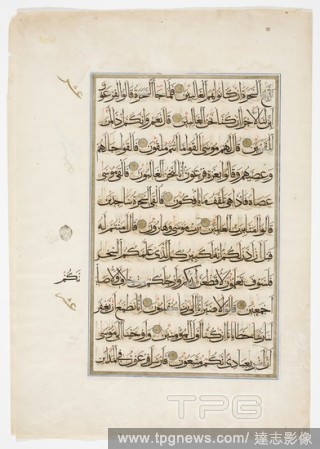 عشر
السحرة إن كانوا هم الغالبين فلما جاء السحرة قالوا لفرعون
أئن لنا لأجرا إن كنا نحن الغالبين قال نعم وإنكم إذا لمن
المقربين قال لهم موسى ألقوا ما أنتم ملقون فألقوا حبالهم
وعصيهم وقالوا بعزة فرعون إنا لنحن الغالبون فألقى موسى
عصاه فإذا هي تلقف ما يأفكون فألقي السحرة ساجدين
قالوا آمنا برب العالمين رب موسى وهارون قال آمنتم له
قبل أن آذن لكم إنه لكبيركم الذي علمكم السحر
فلسوف تعلمون لأقطعن أيديكم وأرجلكم من خلاف ولأصلبنكم
أجمعين قالوا لا ضير إنا إلى ربنا منقلبون إنا نطمع أن يغفر
عشر
لنا ربنا خطايانا أن كنا أول المؤمنين وأوحينا إلى موسى
أن أسر بعبادي إنكم متبعون فأرسل فرعون في المدائن
TPG
www.tpgnews.com/ 達志影像